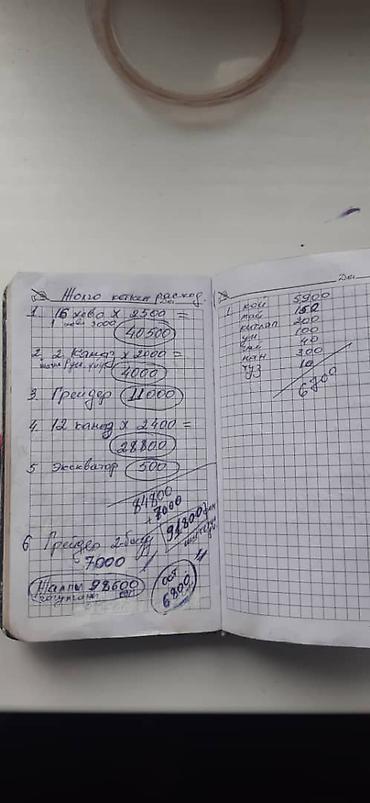 Жолго кеткен расход.
1. 16 хово х 2500 =
1 хово 3000
40500
2. 2 Камаз х 2000 =
4000
3. Грейдер 11000
4. 12 камаз х 2400 =
28800
5. Экскватор 500
84800
+ 7000
91800
6. Грейдер 2
7000
Жалпы 98600
ост
6800
Дни
1. кой 5900
май 150
200
ун 100
40
нан 300
туз 10
6700